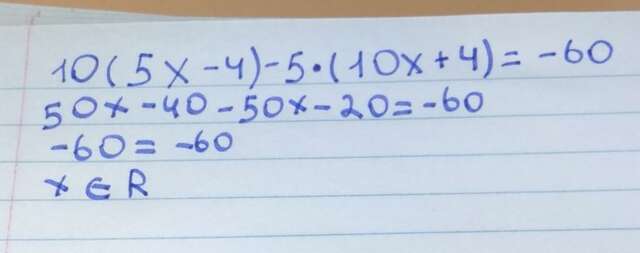 10(5x-4)-5•(10x+4)=-60
50x-40-50x-20=-60
-60=-60
x∈R